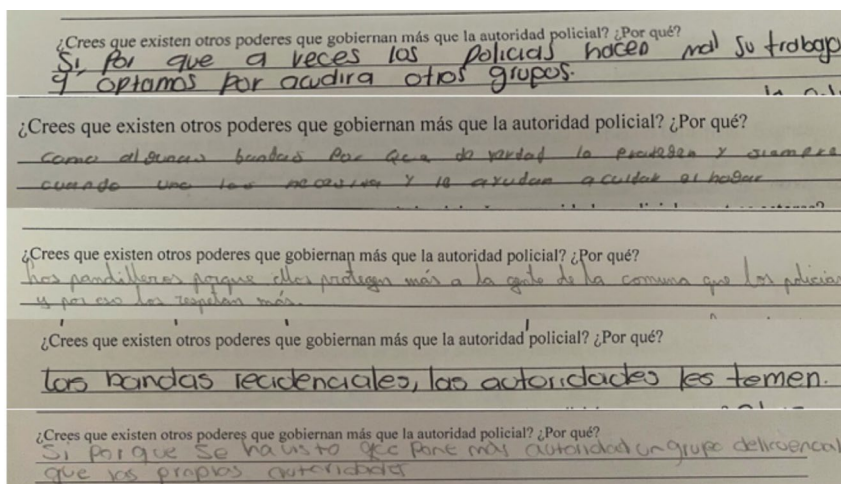 ¿Crees que existen otros poderes que gobiernan más que la autoridad policial? ¿Por qué?
Si, por que a veces los policias hacen mal su trabajo
y optamos por acudir a otros grupos.
¿Crees que existen otros poderes que gobiernan más que la autoridad policial? ¿Por qué?
como algunas bandas por que de verdad lo protegen y siempre
cuando uno los necesita y le ayudan a cuidar el hogar
¿Crees que existen otros poderes que gobiernan más que la autoridad policial? ¿Por qué?
Los pandilleros porque ellos protegen más a la gente de la comuna que los policias
y por eso los respetan más.
¿Crees que existen otros poderes que gobiernan más que la autoridad policial? ¿Por qué?
las bandas recidenciales, las autoridades les temen.
¿Crees que existen otros poderes que gobiernan más que la autoridad policial? ¿Por qué?
Si porque se ha visto que pone más autoridad un grupo delincuencial
que las propias autoridades